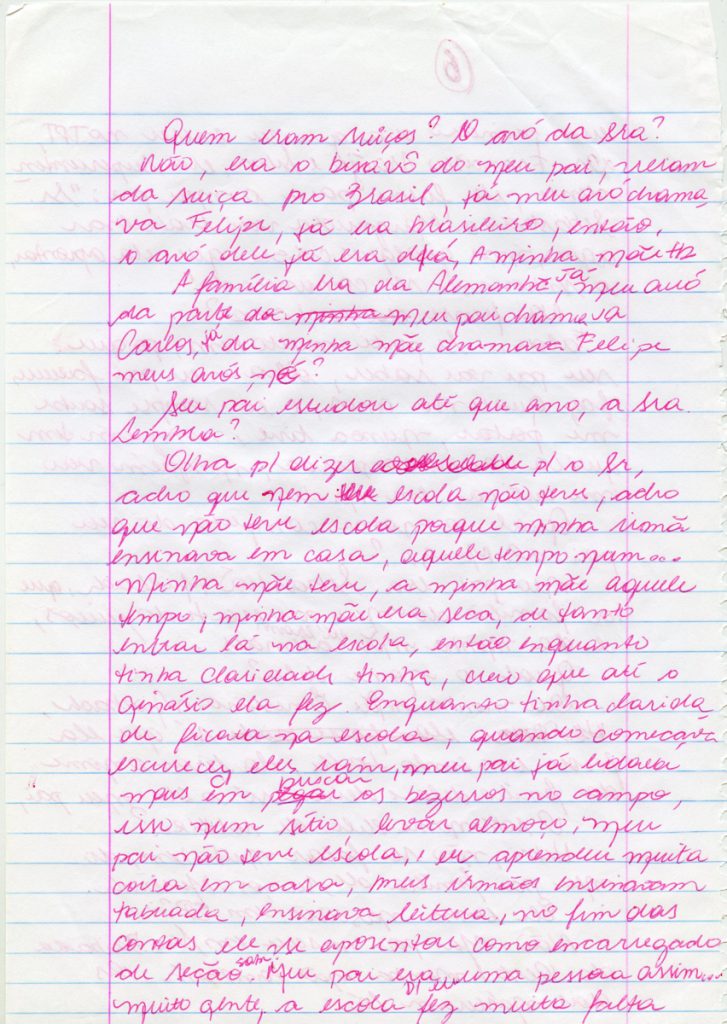 6
Quem eram suiços? O avó da sra?
Não, era o bisavô do meu pai, vieram
da suiça pro Brasil, já meu avó chama
va Felipe, já era brasileiro, então,
o avó dele já era de lá, A minha mãe
A família era da Alemanhã, já meu avó
da parte da minha meu pai chamava
Carlos, já da minha mãe chamava Felipe
meus avós, né?
Seu pai estudou até que ano, a sra.
Lembra?
Olha p/ dizer p/ o Sr,
acho que nem escola não teve, acho
que não teve escola porque minha irmã
ensinava em casa, aquele tempo num...
Minha mãe teve, a minha mãe aquele
tempo, minha mãe era seca, de tanto
entrar lá na escola, então enquanto
tinha claridade tinha, creio que até o
Ginásio ela fez. Enquanto tinha clarida
de ficava na escola, quando começava
escurecer, eles saím, meu pai já lidava
mais em pegar buscar os bezerros no campo,
isso num sítio, levar almoço, meu
pai não teve escola, e ele aprendeu muita
coisa em casa, meus irmãos ensinavam
tabuada, ensinava leitura, no fim das
contas ele se aposentou como encarregado
de seção. sam. Meu pai era uma pessoa assim...
muito gente, a escola p/ ele fez muita falta